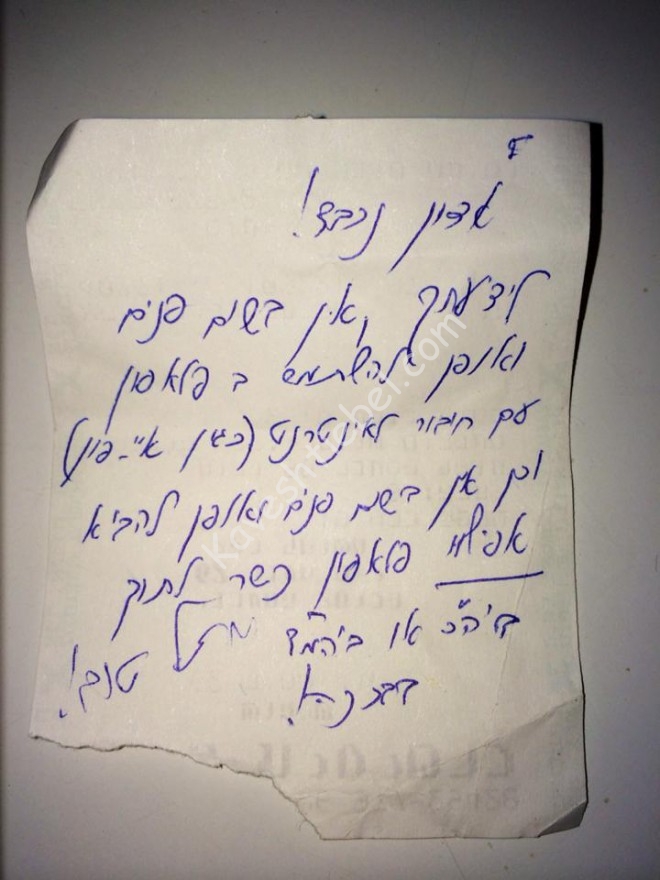 אדון נכבד!
לידיעתך, אין בשום פנים
ואופן להשתמש ב פלאפון
עם חיבור לאינטרנט (כגון איי-פון)
וכן אין בשום פנים ואופן להביא
אפילו פלאפון כשר לתוך
ביהכ"נ או ביהמ"ד מזל טוב!
בברכה!
KareshKleber.com